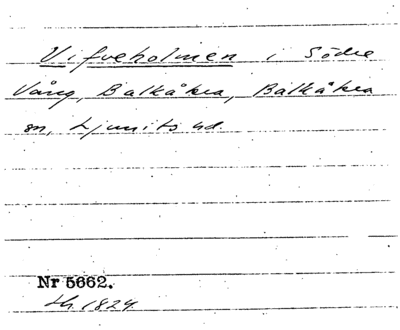 Vifveholmen i Södra
Vång, Balkåkra, Balkåkra
sn, Ljunits hd.
Nr 5662.
1824